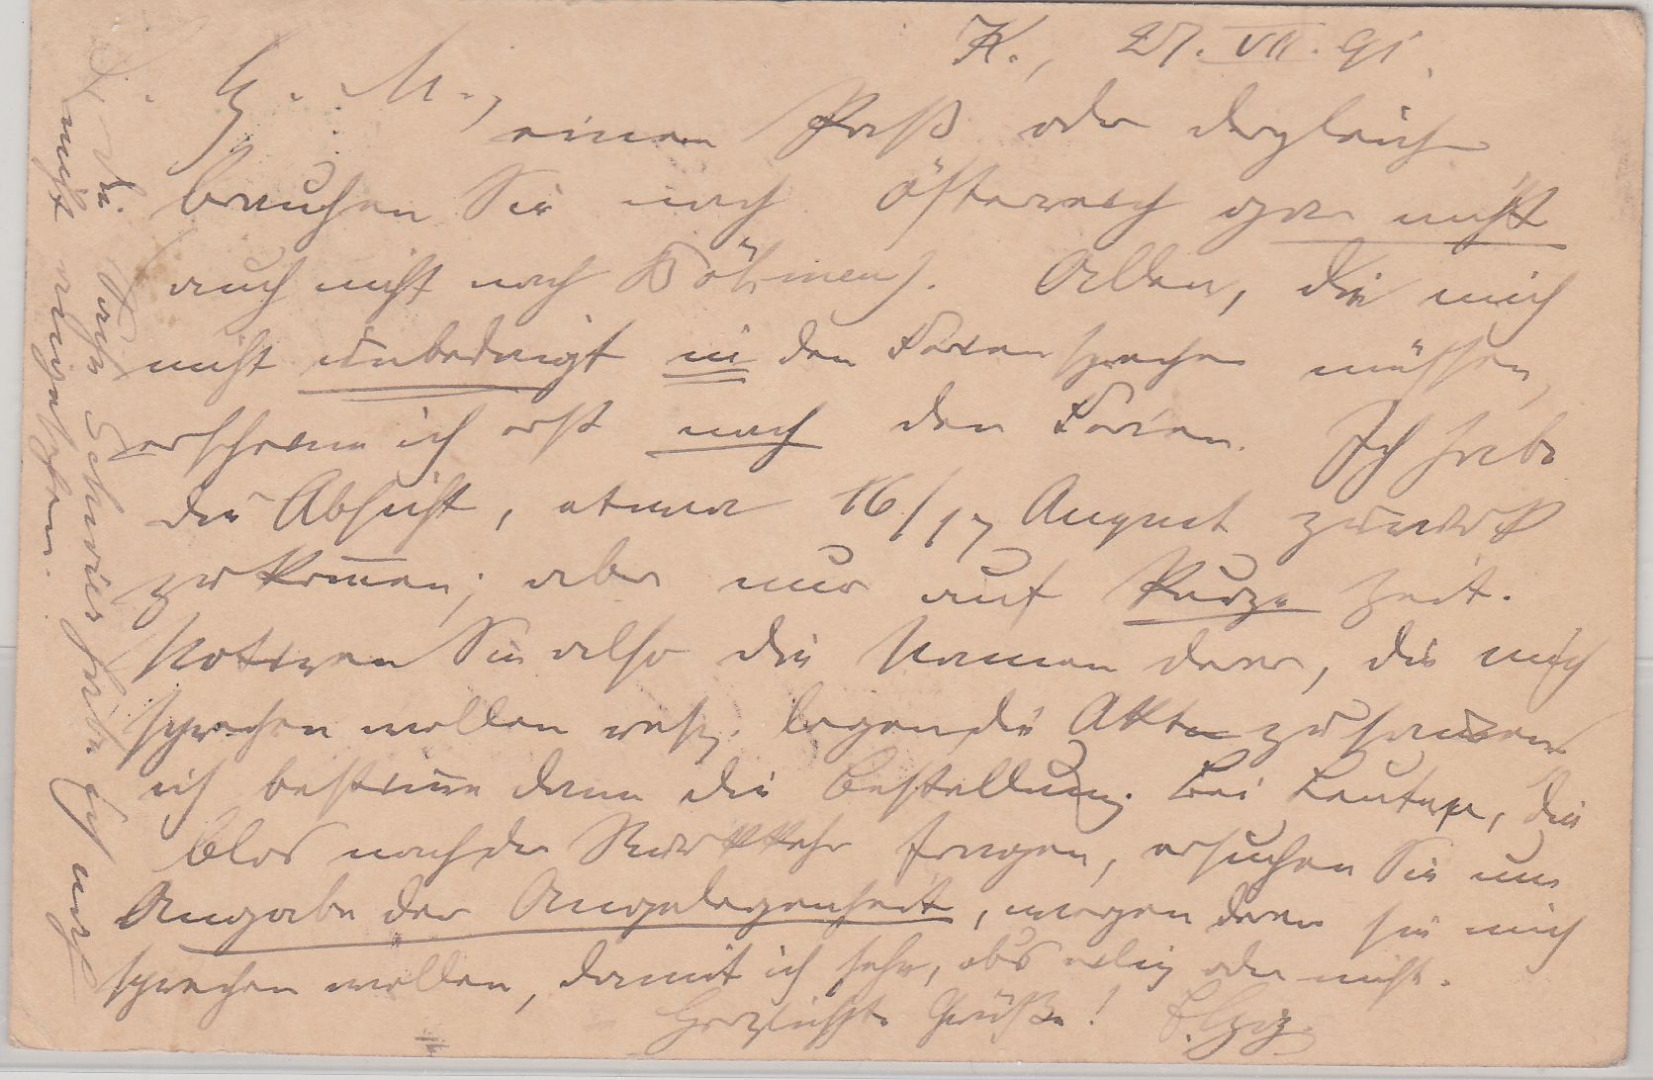 K., 27. VII. 91.
G. M.,
einen Paß oder dergleichen
brauchen Sie nach Österreich gar nicht
auch nicht nach Böhmen). Allen, die mich
nicht unbedingt in den Ferien sprechen müssen,
erscheine ich erst nach den Ferien. Ich habe
die Absicht, etwa 16/17 August zurück
zu kommen; aber nur auf kurze Zeit.
Notiren Sie also die Namen derer, die mich
sprechen wollen resp. legen die Akten zusammen
ich bestimme dann die Bestellung. Bei Leuten, die
blos nach der Rückkehr fragen, ersuchen Sie um
Angabe der Angelegenheit, wegen deren sie mich
sprechen wollen, damit ich sehe, obs eilig oder nicht.
Herzlichste Grüße!
Die Sache habe ich noch
nicht